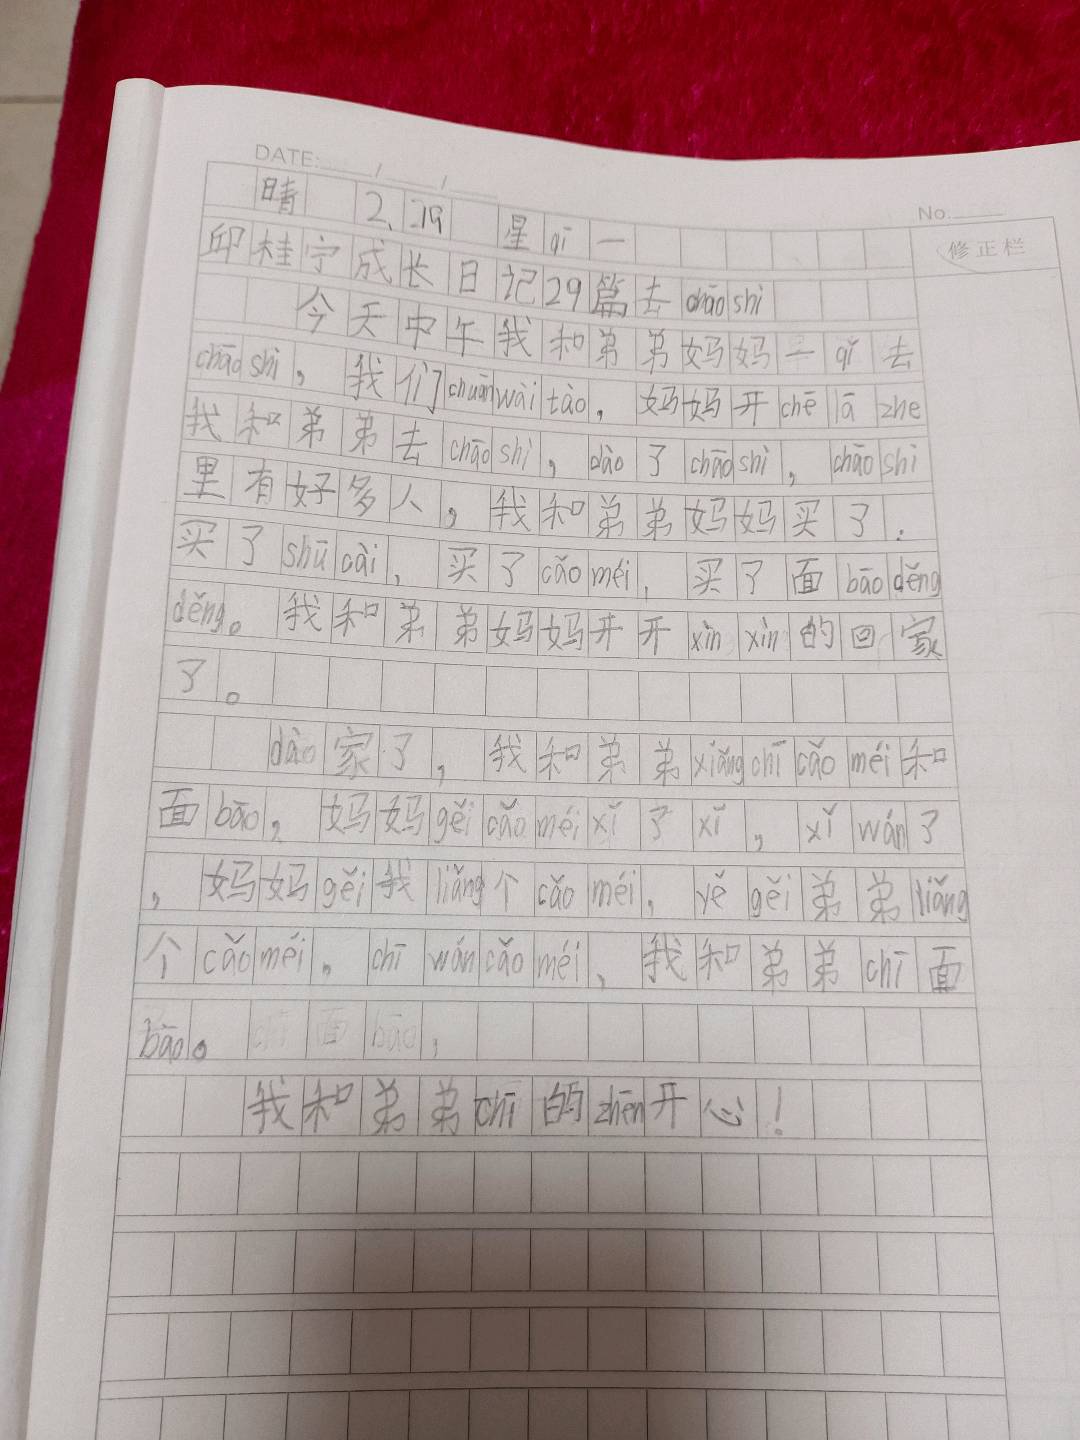 DATE: / /
No.
修正栏
晴 2、29 星qī一
邱桂宁成长日记29篇去chāo shì
今天中午我和弟弟妈妈一qǐ去
chāo shì，我们chuānwài tào，妈妈开chē lā zhe
我和弟弟去chāo shì，dào了chāo shì，chāo shì
里有好多人，我和弟弟妈妈买了：
买了shū cài，买了cǎo méi，买了面bāo děng
děng。我和弟弟妈妈开开xīn xīn的回家
了。
dào家了，我和弟弟xiǎng chī cǎo méi和
面bāo，妈妈gěi cǎo méi xǐ了xǐ，xǐ wán了
，妈妈gěi我liǎng个cǎo méi，yě gěi弟弟liǎng
个cǎo méi，chī wán cǎo méi、我和弟弟chī面
bāo。chī面bāo，
我和弟弟chī的zhēn开心！